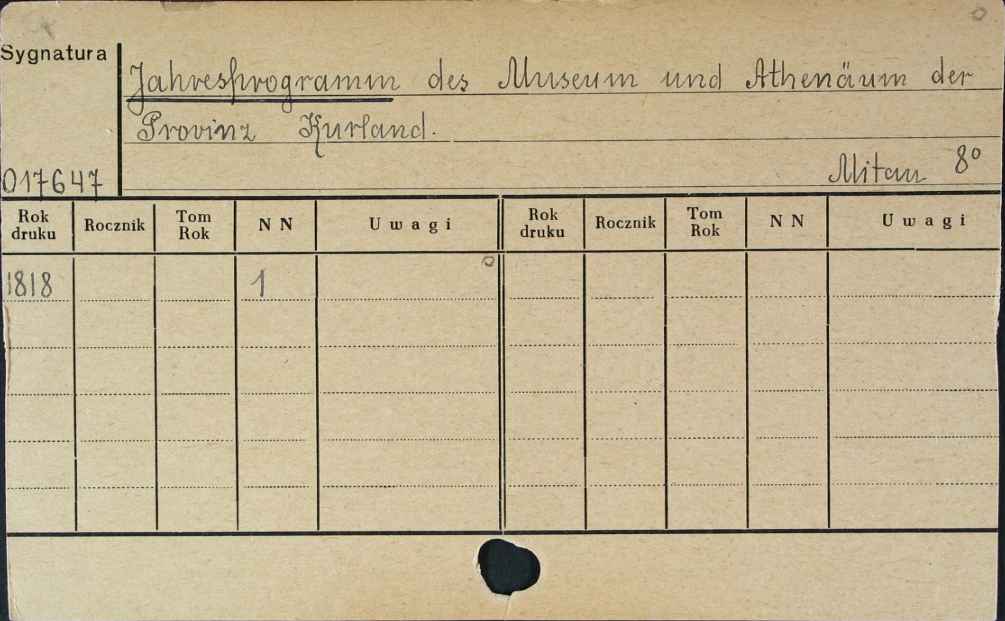 Sygnatura
Jahresprogramm des Museum und Athenäum der
Provinz Kurland.
Mitau 8°
017647
Rok druku Rocznik Tom Rok N N Uwagi Rok druku Rocznik Tom Rok N N Uwagi
1818 1